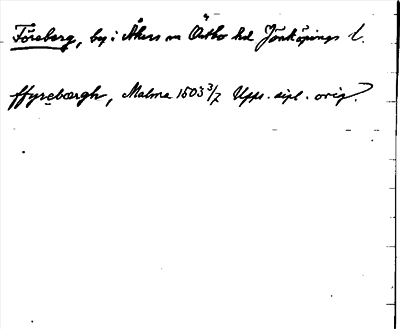 Föreberg, by i Åkers sn Östbo hd Jönköpings l.
ffyrebærgh, Malma 1503 3/7 Upps. dipl. orig.